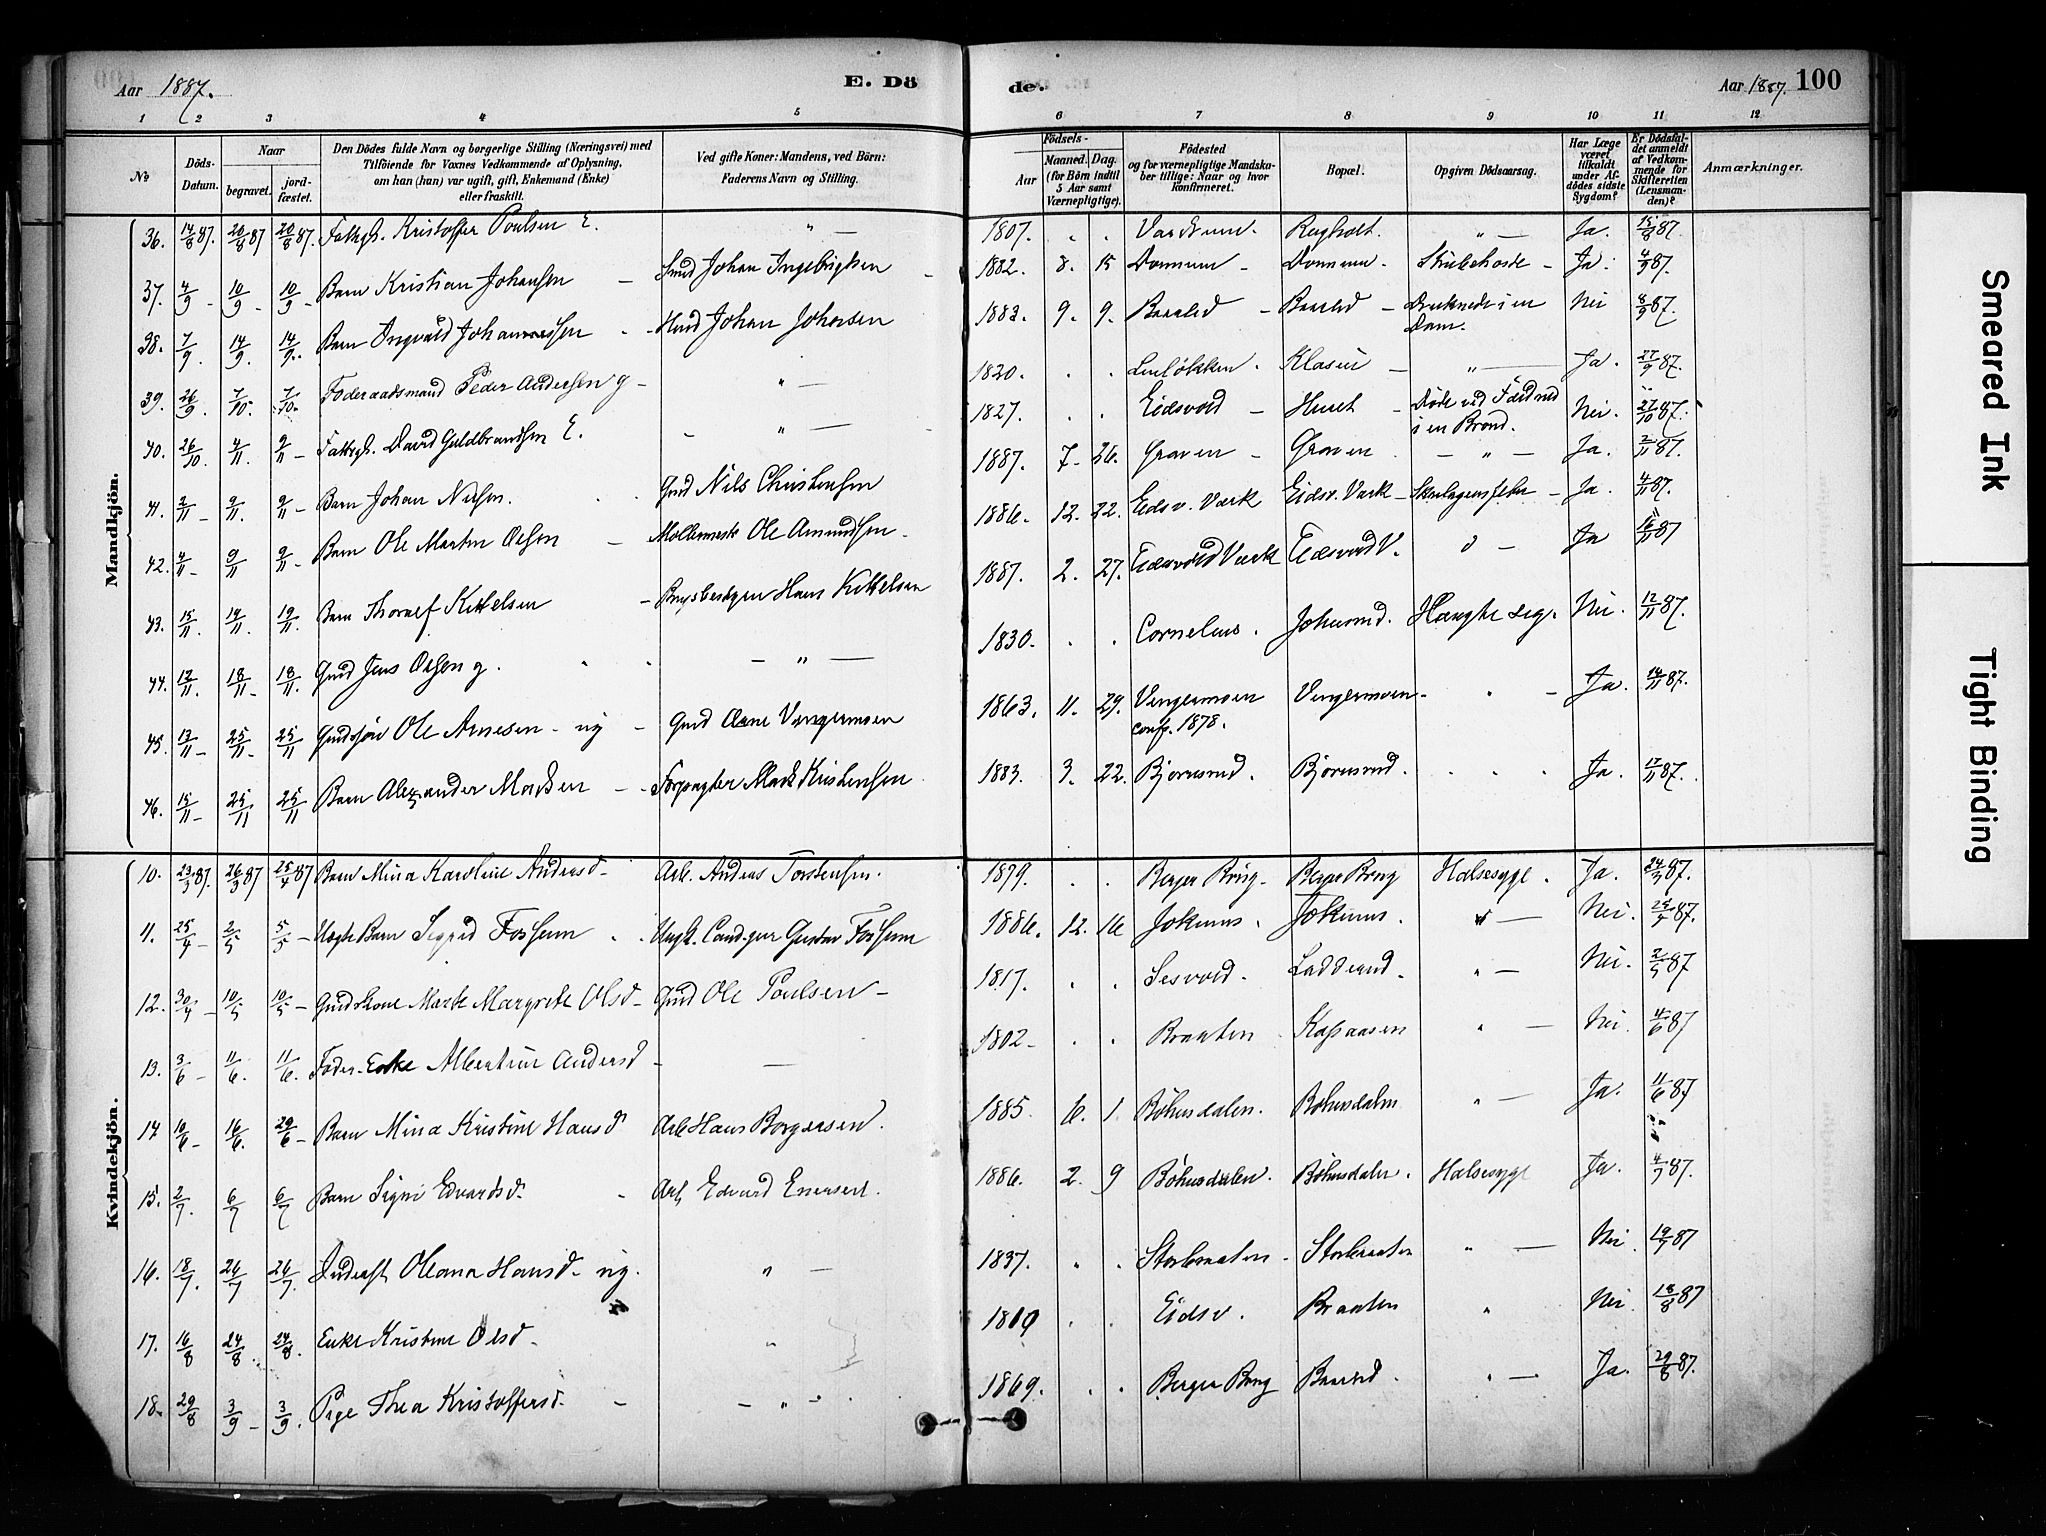 Aar 1887.
E. Döde.
Aar 1887. 100
1 2 3 4 5 6 7 8 9 10 11 12
No
Döds-Datum.
Naar
begravet. jord-fæstet.
Den Dödes fulde Navn og borgerlige Stilling (Næringsvei) med
Tilföiende for Voxnes Vedkommende af Oplysning,
om han (hun) var ugift, gift, Enkemand (Enke)
eller fraskilt.
Ved gifte Koner: Mandens, ved Börn:
Faderens Navn og Stilling.
Födsels-
Aar
Maaned. Dag.
(for Börn indtil
5 Aar samt
Værnepligtige).
Födested
og for værnepligtige Mandska-
ber tillige: Naar og hvor
konfirmeret.
Bopæl.
Opgiven Dödsaarsag.
Har Læge
været
tilkaldt
under Af-
dödes sidste
Sygdom?
Er Dödsfal-
det anmeldt
af Vedkom-
mende for
Skifteretten
(Lensman-
den)?
Anmærkninger.
Mandkjön.
36. 14/8 87. 20/8 87 20/8 87. Fattigh. Kristoffer Poulsen E. " — 1807. Ja. 15/8 87.
37. 4/9 - 10/9 - 10/9 - Barn Kristian Johansen - Smed Johan Ingebrigtsen 1882. 8. 15 Dønnum - Dønnum - Strubehoste - Ja. 4/9 87.
38. 7/9. 14/9. 14/9. Barn Ingvald Johannessen - Huusd Johan Johansen 1883. 9. 9. Baarlid - Baarlid - Druknede i en Dam. Nei 8/9 87.
39. 26/9. 7/10. 7/10. Foderaadsmand Peder Andersen g - " — 1820. Ja. 27/9 87.
40. 26/10. 4/11. 9/11 - Fattigh. David Guldbrandsen E. - " — 1827. Eidsvold - Huset - Døde ved Fald ned i en Brønd. Nei. 27/10 87.
41. 2/11 - 9/11. 9/11 - Barn Johan Nilsen. Gmd Nils Christensen 1887. 7. 26. Graven - Graven - " — Ja. 2/11 87.
42. 4/11 - 9/11 9/11 - Barn Ole Martin Olsen - Ole Amundsen. 1886. 12. 22. Eidsv. Værk Eidsv. Værk - Ja. 4/11 87.
43. 15/11. 19/11. 19/11. Barn Thoralf Kittelsen - Hans Kittelsen 1887. 2. 27. Eidsvold Værk Eidsvold V. Ja 16/11 87
44. 12/11. 18/11 - 18/11. Gmd Jens Olsen g. - " — 1830. Cornelius. Johnsrud. Hængte sig. Nei. 12/11 87.
45. 13/11 - 25/11 - 25/11 Gmdssøn Ole Arnesen - ug - Gmd Arne Vengermoen 1863. 11. 29. Vengermoen conf. 1878. Vengermoen - " - Ja. 14/11 87.
46. 15/11 - 25/11 25/11 Barn Alexander Madsen - Forpagter Mads Kristensen 1883. 3. 22. Bjørnsrud. Bjørnsrud. Ja. 17/11 87.
Kvindekjön.
10. 23/3 87. 26/3 87 25/4 87 Barn Mina Karoline Andersd - Arb. Andreas Torstensen. 1879. Berger Brug - Berger Brug Halsesyge. Ja. 24/3 87.
11. 25/4 - 2/5 5/5 - Uægte Barn Sigrid Fossum Ungk. Cand. jur Gustav Fossum 1886. 12. 16 Jokums. Jokums. " — Nei. 25/4 87.
12. 30/4 - 10/5 10/5 - Gmdskone Marte Margrete Olsd - Gmd Ole Poulsen - 1817. Sesvold. Ladderud. " — Nei. 2/5 87
13. 3/6 - 11/6. 11/6. Foder-Enke Albertine Andersd - — 1802 - Braaten " — Nei. 4/6 87
14 10/6 - 16/6. 29/6 - Barn Mina Kristine Hansd Arb Hans Borgersen. 1885. 6. 1. Bøhnsdalen. Bøhnsdalen " — Ja. 11/6 87
15. 2/7. 6/7 6/7 Barn Signe Edvardsd. Arb Edvard Enersen. 1886. 2. 9 Bøhnsdalen. Bøhnsdalen. Halsesyge Ja. 4/7 87.
16. 18/7. 26/7 26/7. Inderst Oleana Hansd - ug. " — 1837. Storbraaten - Storbraaten " — Nei. 19/7 87
17. 16/8 24/8. 24/8. Enke Kristine Olsd - " 1819 Eidsv. Braaten " Nei. 18/8 87
18. 29/8 3/9 - 3/9. Pige Thea Kristoffersd. - - " - 1869. Berger Brug Baarlid. " — Ja. 29/8 87.
Smeared Ink
Tight Binding